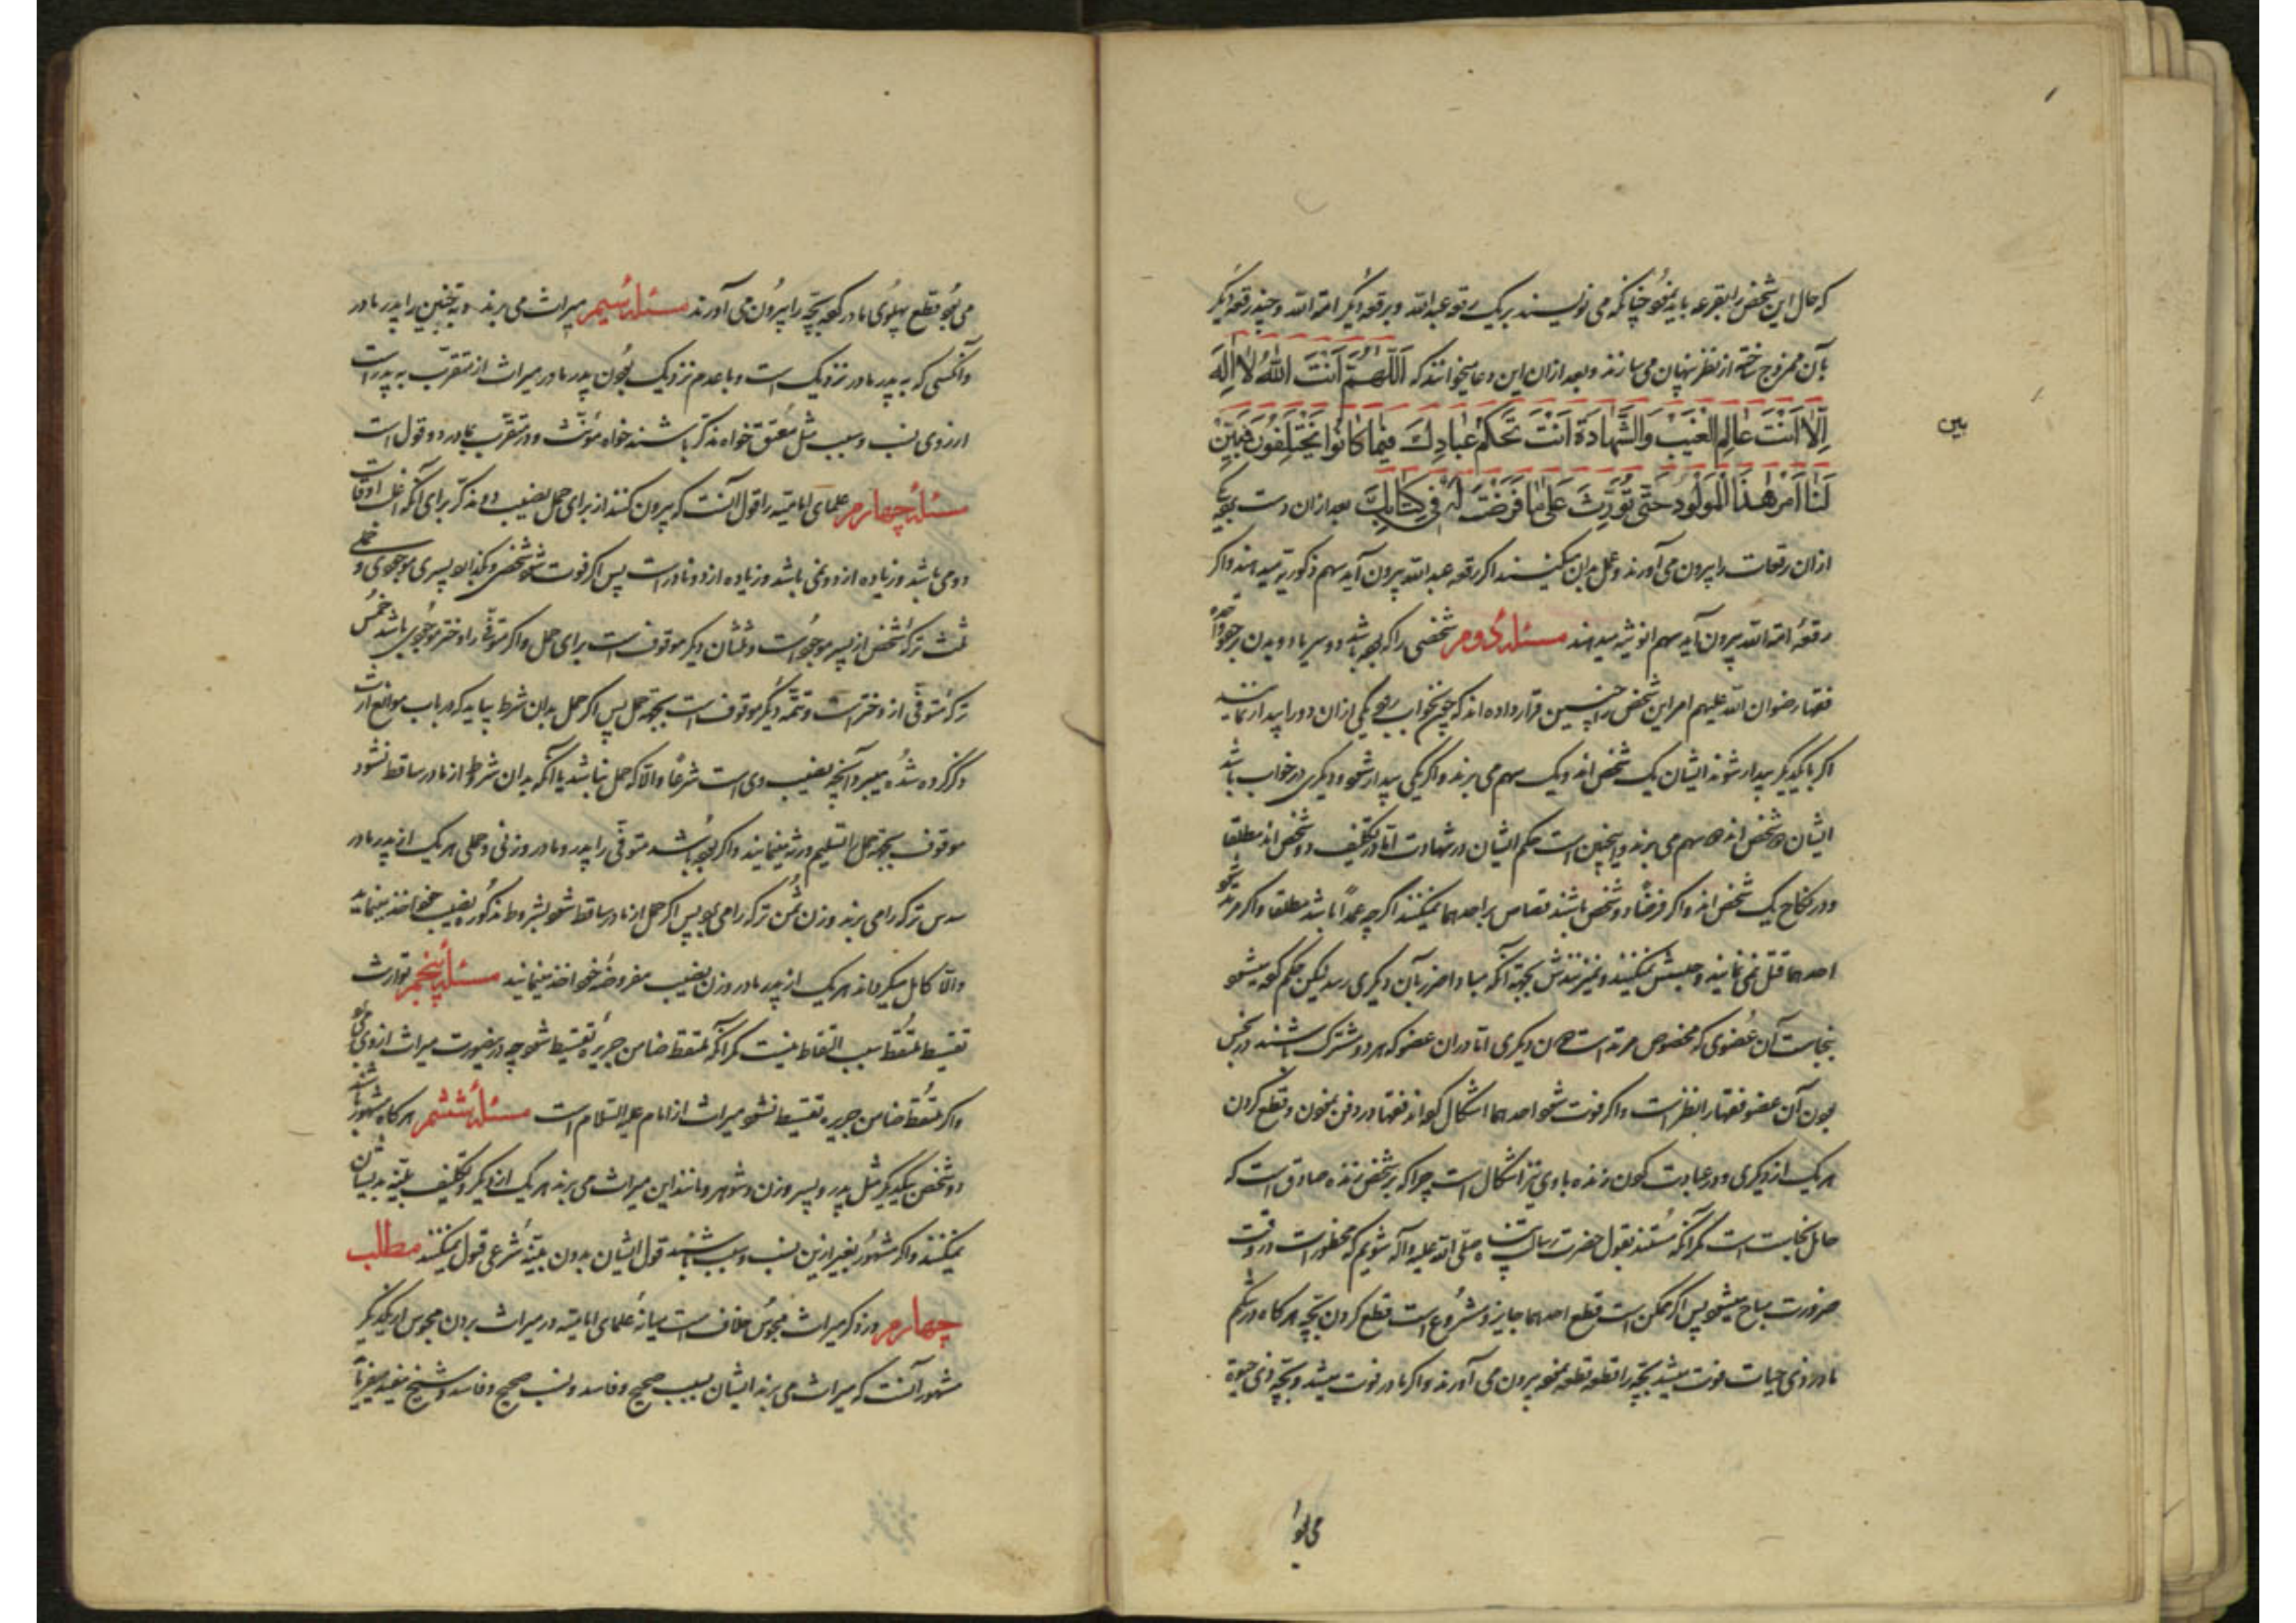 که حال این شخص را بقرعه باید نمود چنانکه می نویسند بر یک رقعه عبدالله و بر رقعه دیگر امة الله و چند رقعه دیگر
بآن ممزوج ساخته از نظر پنهان می سازند و بعد ازان این دعا میخوانند که اَللّٰهُمَّ اَنْتَ اللّٰهُ لَا اِلٰهَ
اِلَّا اَنْتَ عَالِمَ الْغَيْبِ وَالشَّهَادَةِ اَنْتَ تَحْكُمُ عِبَادِكَ فِيمَا كَانُوا يَخْتَلِفُونَ فَبَيِّنْ
بین
لَنَا اَمْرَ هٰذَا الْمَوْلُودِ حَتّٰى تُوَرِّثَ عَلٰى مَا فَرَضْتَ لَهُ فِي كِتَابِكَ بعد ازان دست یکی
ازان رقعات را بیرون می آورند و عمل بدان میکنند اگر رقعه عبدالله بیرون آید سهم ذکوریه میدهند و اگر
رقعهٔ امة الله بیرون آید سهم انوثیه میدهند مسئلهٔ دوم شخصی را که بوده باشد دو سر یا دو بدن بر
فقها رضوان الله علیهم امر این شخص را چنین قرار داده اند که چون بخواب رود یکی ازان دو را بیدار نمایند
اگر با یکدیگر بیدار شوند ایشان یک شخص اند و یک سهم می برند و اگر یکی بیدار شود و دیگری در خواب باشد
ایشان دو شخص اند دو سهم می برند و همچنین است حکم ایشان در شهادت اما در تکلیف دو شخص اند مطلقا
و در نکاح یک شخص اند و اگر فرضا دو شخص باشند قصاص بر احدهما نمیکنند اگر چه عمداً باشد مطلقا و اگر مرتد شود
احدهما قتل نمی نمایند و حبسش نمیکنند و نمیزنندش بجهة آنکه مبادا ضرر بآن دیگری رسد لیکن حکم کرده میشود
بنجاست آن عضوی که مخصوص مرتد است دون دیگری اما دران عضو که هر دو مشترک باشند در نجس
بودن آن عضو فقها را نظر است و اگر فوت شود احدهما اشکال کرده اند فقها در دفن نمودن و قطع کردن
هر یک از دیگری و در عبادت کردن زنده با وی نیز اشکال است چرا که بر شخص زنده صادق است که
حامل نجاست است مگر آنکه مستند بقول حضرت رسالت پناه صلی الله علیه و آله شویم که محظورات در وقت
ضرورت مباح میشود پس اگر ممکن است قطع احدهما جایز و مشروع است قطع کردن بچه هرگاه در شکم
مادر ذی حیات فوت میشد بچه را قطعه قطعه نموده بیرون می آورند و اگر مادر فوت میشد و بچه ذی حیوة
می بود
می بود قطع پهلوی مادر کرده بچه را بیرون می آورند مسئلهٔ سیم میراث می برند دیهٔ جنین را پدر مادر
و آنکسی که به پدر مادر نزدیک است و با عدم نزدیک بودن پدر مادر میراث از متقرب به پدر است
از روی نسب و سبب مثل معتق خواه مذکر باشند خواه مؤنث و در متقرب بمادر دو قول است
مسئلهٔ چهارم علمای امامیه را قول آنست که بیرون کنند از برای حمل نصیب دو مذکر برای آنکه اغلب اوقات
دو می باشد و زیاده از دو نمی باشد و زیاده از دو نادر است پس اگر فوت شود شخصی و بگذارد پسری موجودی و حملی
ثلث ترکهٔ شخص از پسر موجود است و ثلثان دیگر موقوف است برای حمل و اگر متوفی را دختر موجودی باشد خمس
ترکهٔ متوفی از دختر است و تتمهٔ دیگر موقوف است بجهة حمل پس اگر حمل بدان شرط بیاید که در باب موانع ارث
ذکر کرده شده میبرد آنچه نصیب وی است شرعا و الا که حمل نباشد یا آنکه بدان شروط از مادر ساقط نشود
موقوف بجهة حمل را تسلیم ورثه مینمایند و اگر بوده باشد متوفی را پدر و مادر و زنی و حملی هر یک از پدر مادر
سدس ترکه را می برند و زن ثمن ترکه را می برد پس اگر حمل از مادر ساقط شود بشروط مذکور نصیب خود اخذ مینماید
و الا کامل میگرداند هر یک از پدر مادر و زن نصیب مفروضه خود اخذ مینمایند مسئلهٔ پنجم توارث
لقیط ملتقط بسبب التقاط نیست مگر آنکه ملتقط ضامن جریره لقیط شود چه در ینصورت میراث از وی می برد
و اگر ملتقط ضامن جریره لقیط نشود میراث از امام علیه السلام است مسئلهٔ ششم هرگاه مشهور باشند
دو شخص بیکدیگر مثل پدر و پسر و زن و شوهر و مانند این میراث می برند هر یک از دیگر و تکلیف بینه بدیشان
نمیکنند و اگر مشهور بغیر ازین نسب و سبب باشند قول ایشان بدون بینهٔ شرعی قبول نمیکنند مطلب
چهارم در ذکر میراث مجوس خلاف است میانهٔ علمای امامیه در میراث بردن مجوس از یکدیگر
مشهور آنست که میراث می برند ایشان بسبب صحیح و فاسد و نسب صحیح و فاسد و شیخ مفید میفرماید